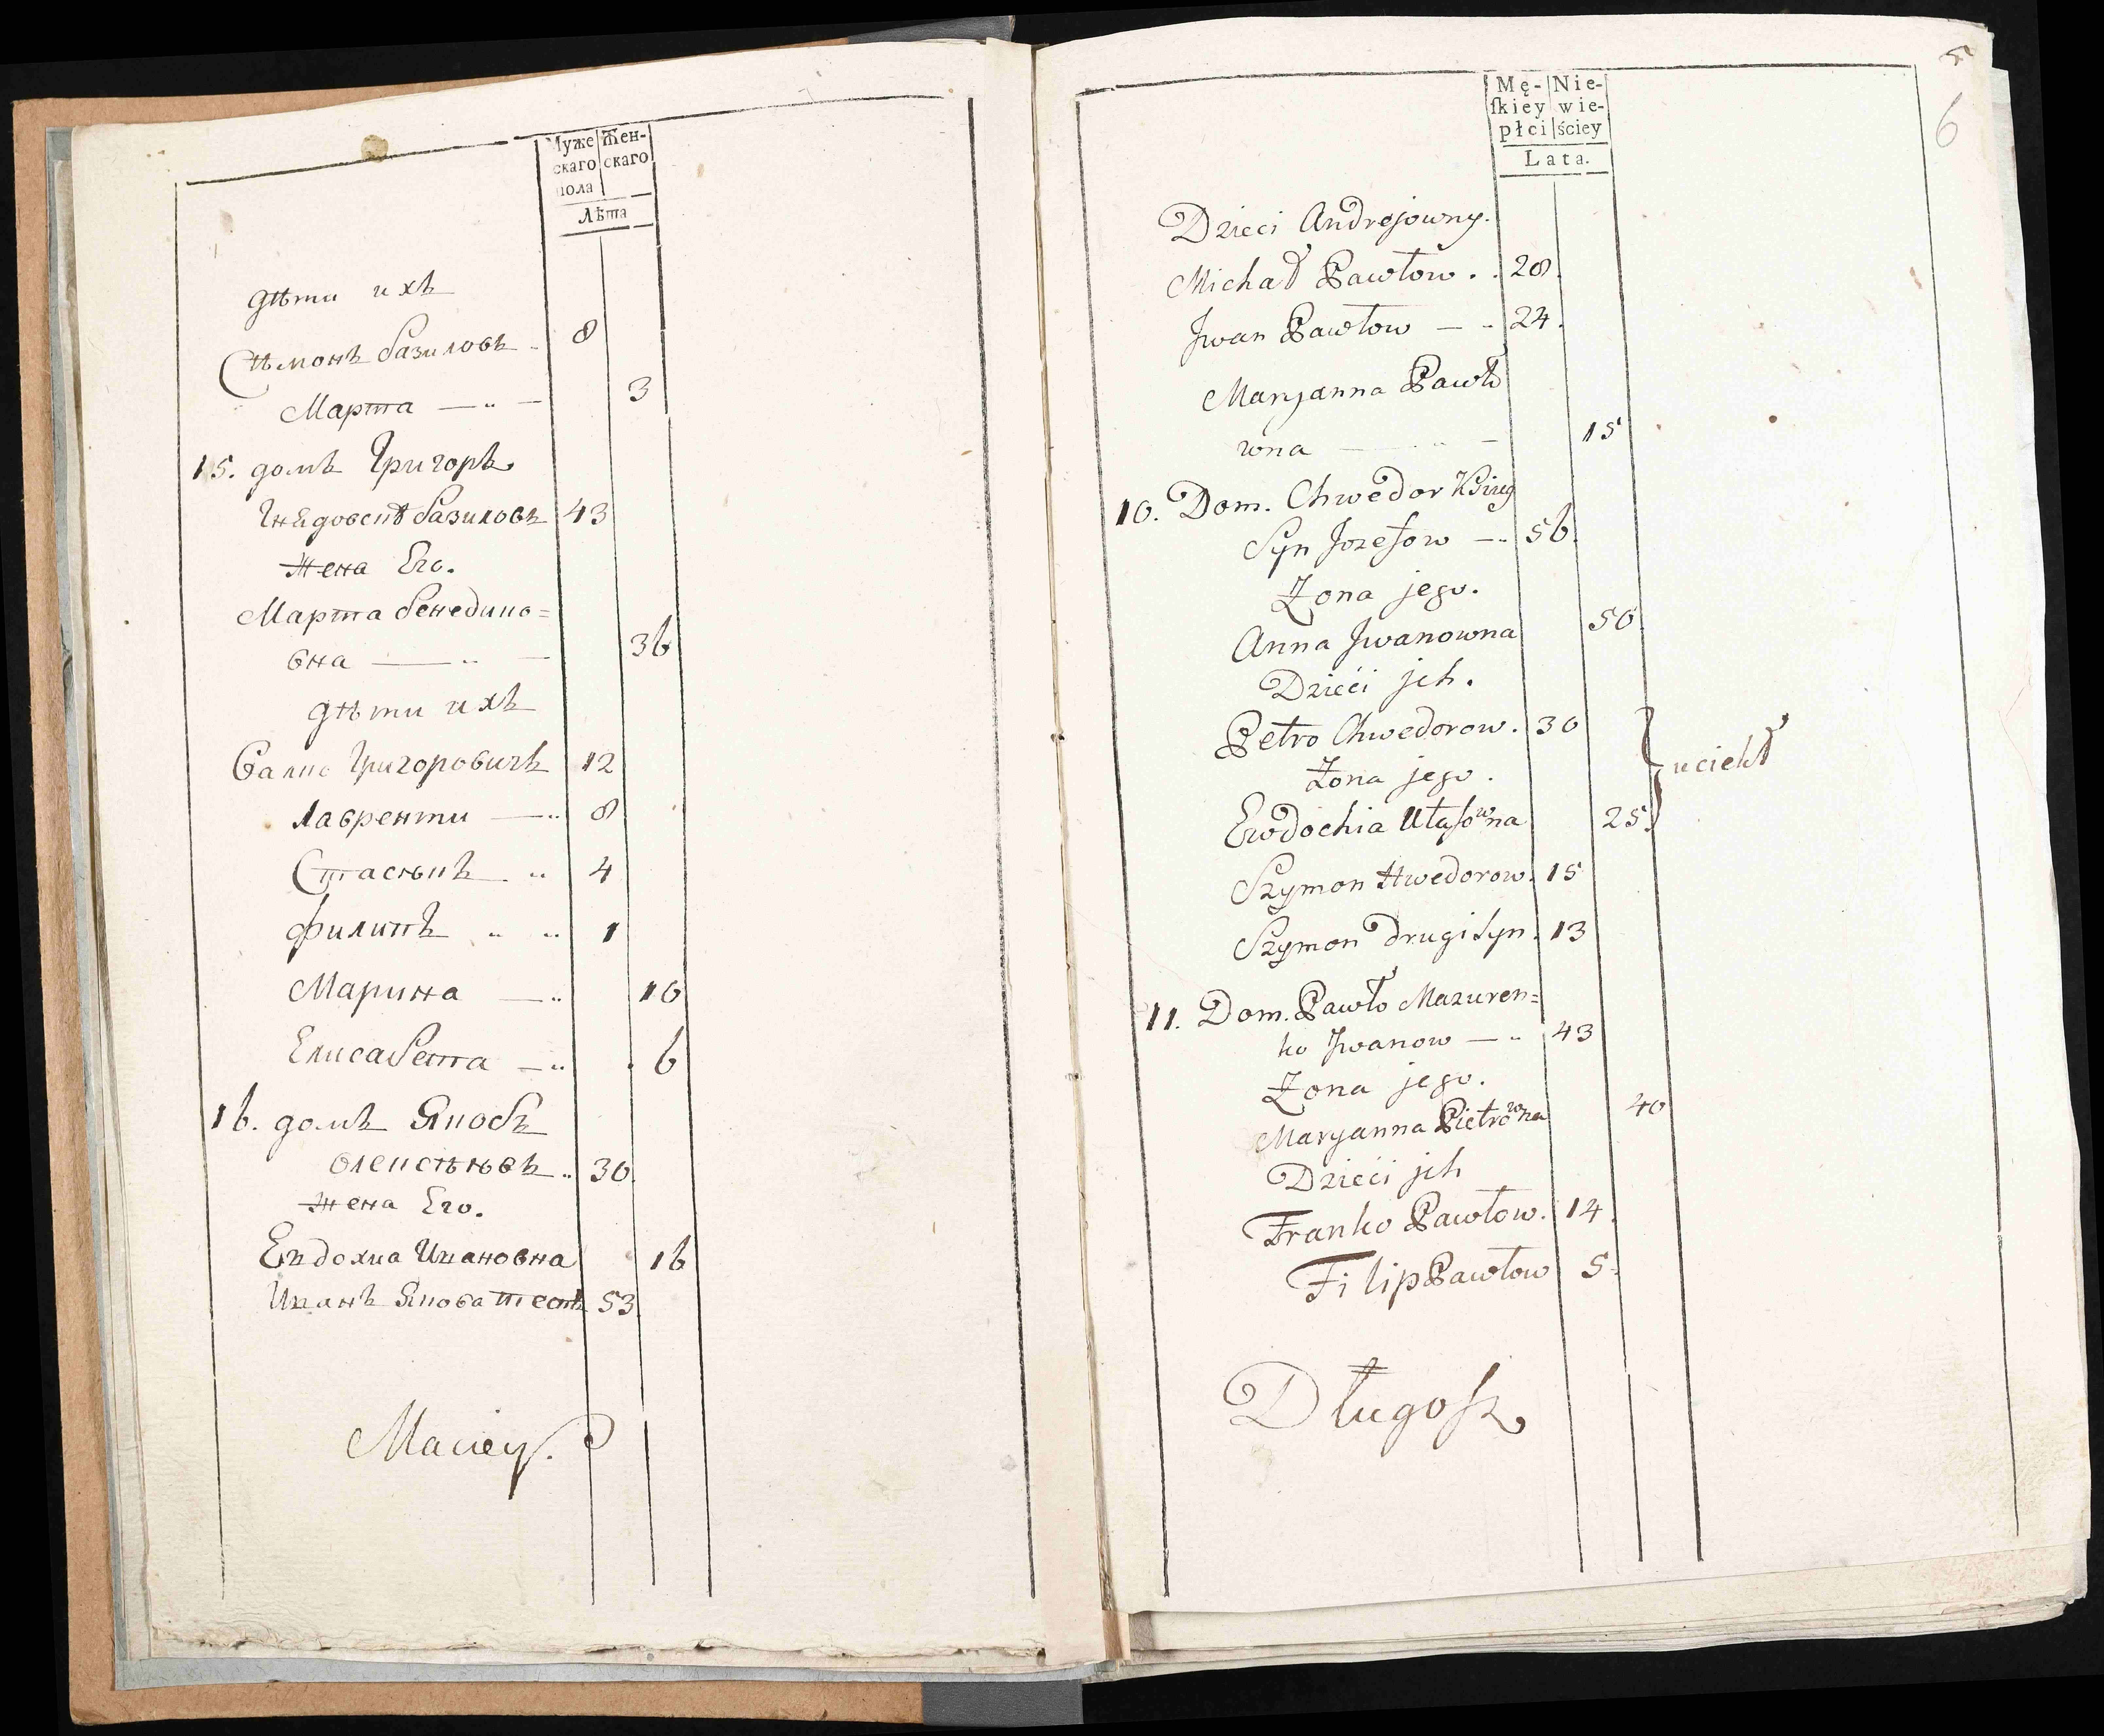 Муже Жен-
скаго скаго
пола
Лѣта
дѣти ихъ
Сѣмонъ базиловъ 8
Марта — „ — 3
15. домъ Григоръ
базиловъ 43
Жена Его.
Марта бенедико=
вна — „ — 36
дѣти ихъ
Григоровичъ 12
Лаврентий — „ 8
Стасюкъ „ 4
Филипъ „ „ 1
Марина — „ 10
Елисабета — „ 6
16. домъ Якобъ
30
Жена Его.
Евдохиа Ивановна 16
Иванъ Якова тесть 53
Maciey.
5
6
Mę- Nie-
ſkiey wie-
płci ściey
Lata.
Dzieci Andrejowny.
Michał Pawłow . . 28.
Jwan Pawłow — „ 24.
Maryanna Pawło
wna — „ — 15
10. Dom. Chwedor
Syn Jozefow — „ 56.
Żona jego.
Anna Jwanowna 50.
Dzieci jch.
Petro Chwedorow. 30
uciekł
Żona jego.
Ewdochia 25.
Szymon Hwedorow. 15
Szymon drugi Syn. 13
11. Dom. Pawło Mazuren=
ko Jwanow — „ 43
Żona jego.
Maryanna Pietrowna 40
Dzieci jch
Franko Pawłow. 14.
Filip Pawłow 5.
Długoſz